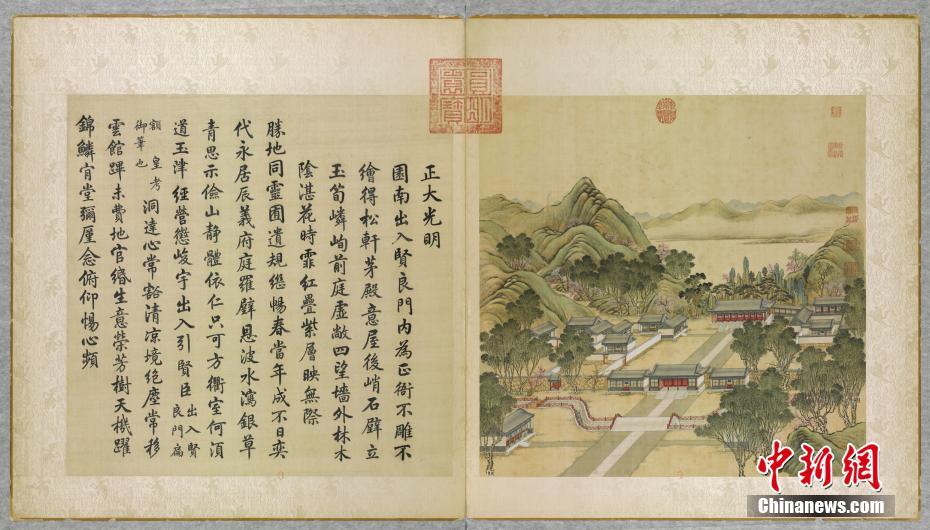 正大光明
園南出入賢良門內為正衙不雕不
繪得松軒茅殿意屋後峭石壁立
玉筍嶙峋前庭虛敞四望墻外林木
陰湛花時霏紅疊紫層映無際
勝地同靈囿遺規繼暢春當年成不日奕
代永居辰義府庭羅璧恩波水瀉銀草
青思示儉山靜體依仁只可方衢室何須
道玉津經營懲峻宇出入引賢臣出入賢良門扁
額皇考御筆也洞達心常豁清涼境絕塵常移
雲館蹕未費地官緡生意榮芳樹天機躍
錦鱗肯堂彌厪念俯仰惕心頻
圓明園寶
中新網
Chinanews.com